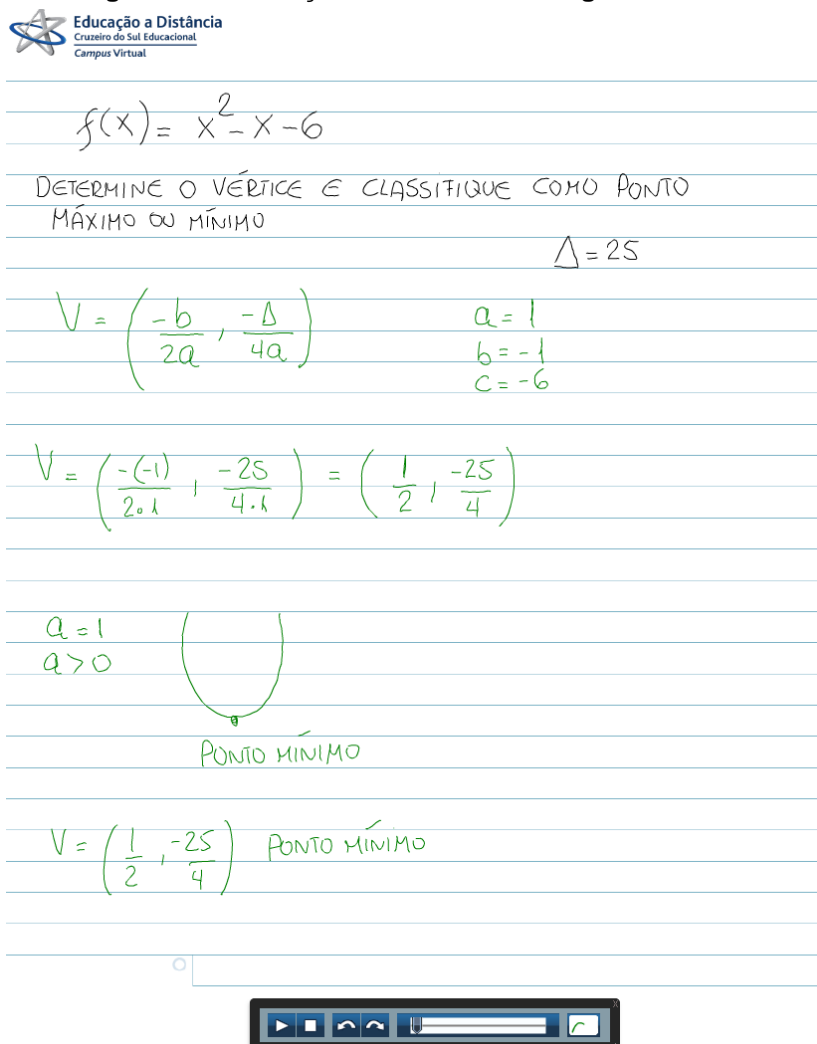 Educação a Distância
Cruzeiro do Sul Educacional
Campus Virtual
f(x) = x² - x - 6
DETERMINE O VÉRTICE E CLASSIFIQUE COMO PONTO
MÁXIMO OU MÍNIMO
Δ = 25
V = (-b/2a , -Δ/4a)
a = 1
b = -1
c = -6
V = (-(-1)/2.1 , -25/4.1) = (1/2 , -25/4)
a = 1
a > 0
PONTO MÍNIMO
V = (1/2 , -25/4) PONTO MÍNIMO
x